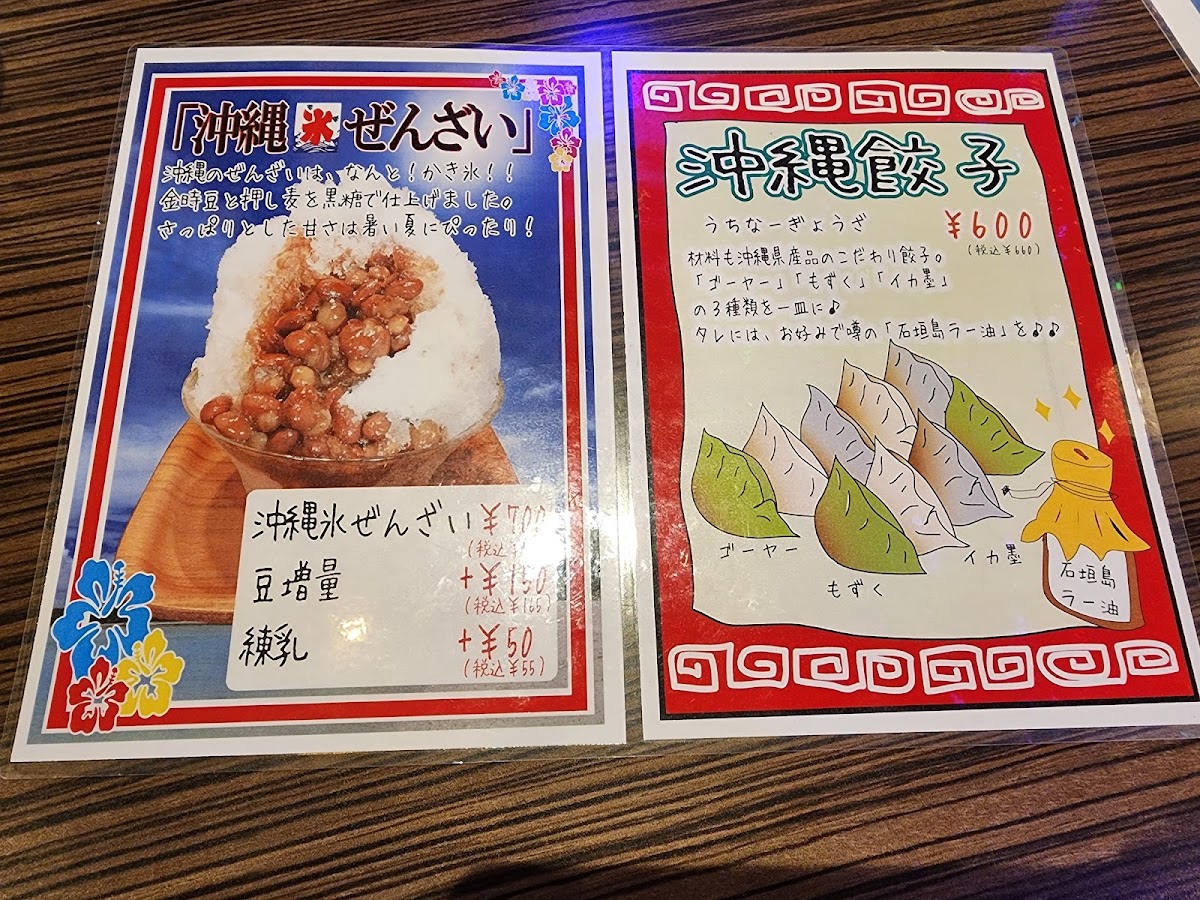 「沖縄氷ぜんざい」
沖縄のぜんざいは、なんと!かき氷!!
金時豆と押し麦を黒糖で仕上げました。
さっぱりとした甘さは暑い夏にぴったり!
沖縄氷ぜんざい ¥700
(税込
豆増量 +¥150
(税込¥165)
練乳 +¥50
(税込¥55)
沖縄餃子
うちなーぎょうざ ¥600
(税込¥660)
材料も沖縄県産品のこだわり餃子。
「ゴーヤー」「もずく」「イカ墨」
の3種類を一皿に♪
タレには、お好みで噂の「石垣島ラー油」を♪♪
ゴーヤー
もずく
イカ墨
石垣島
ラー油